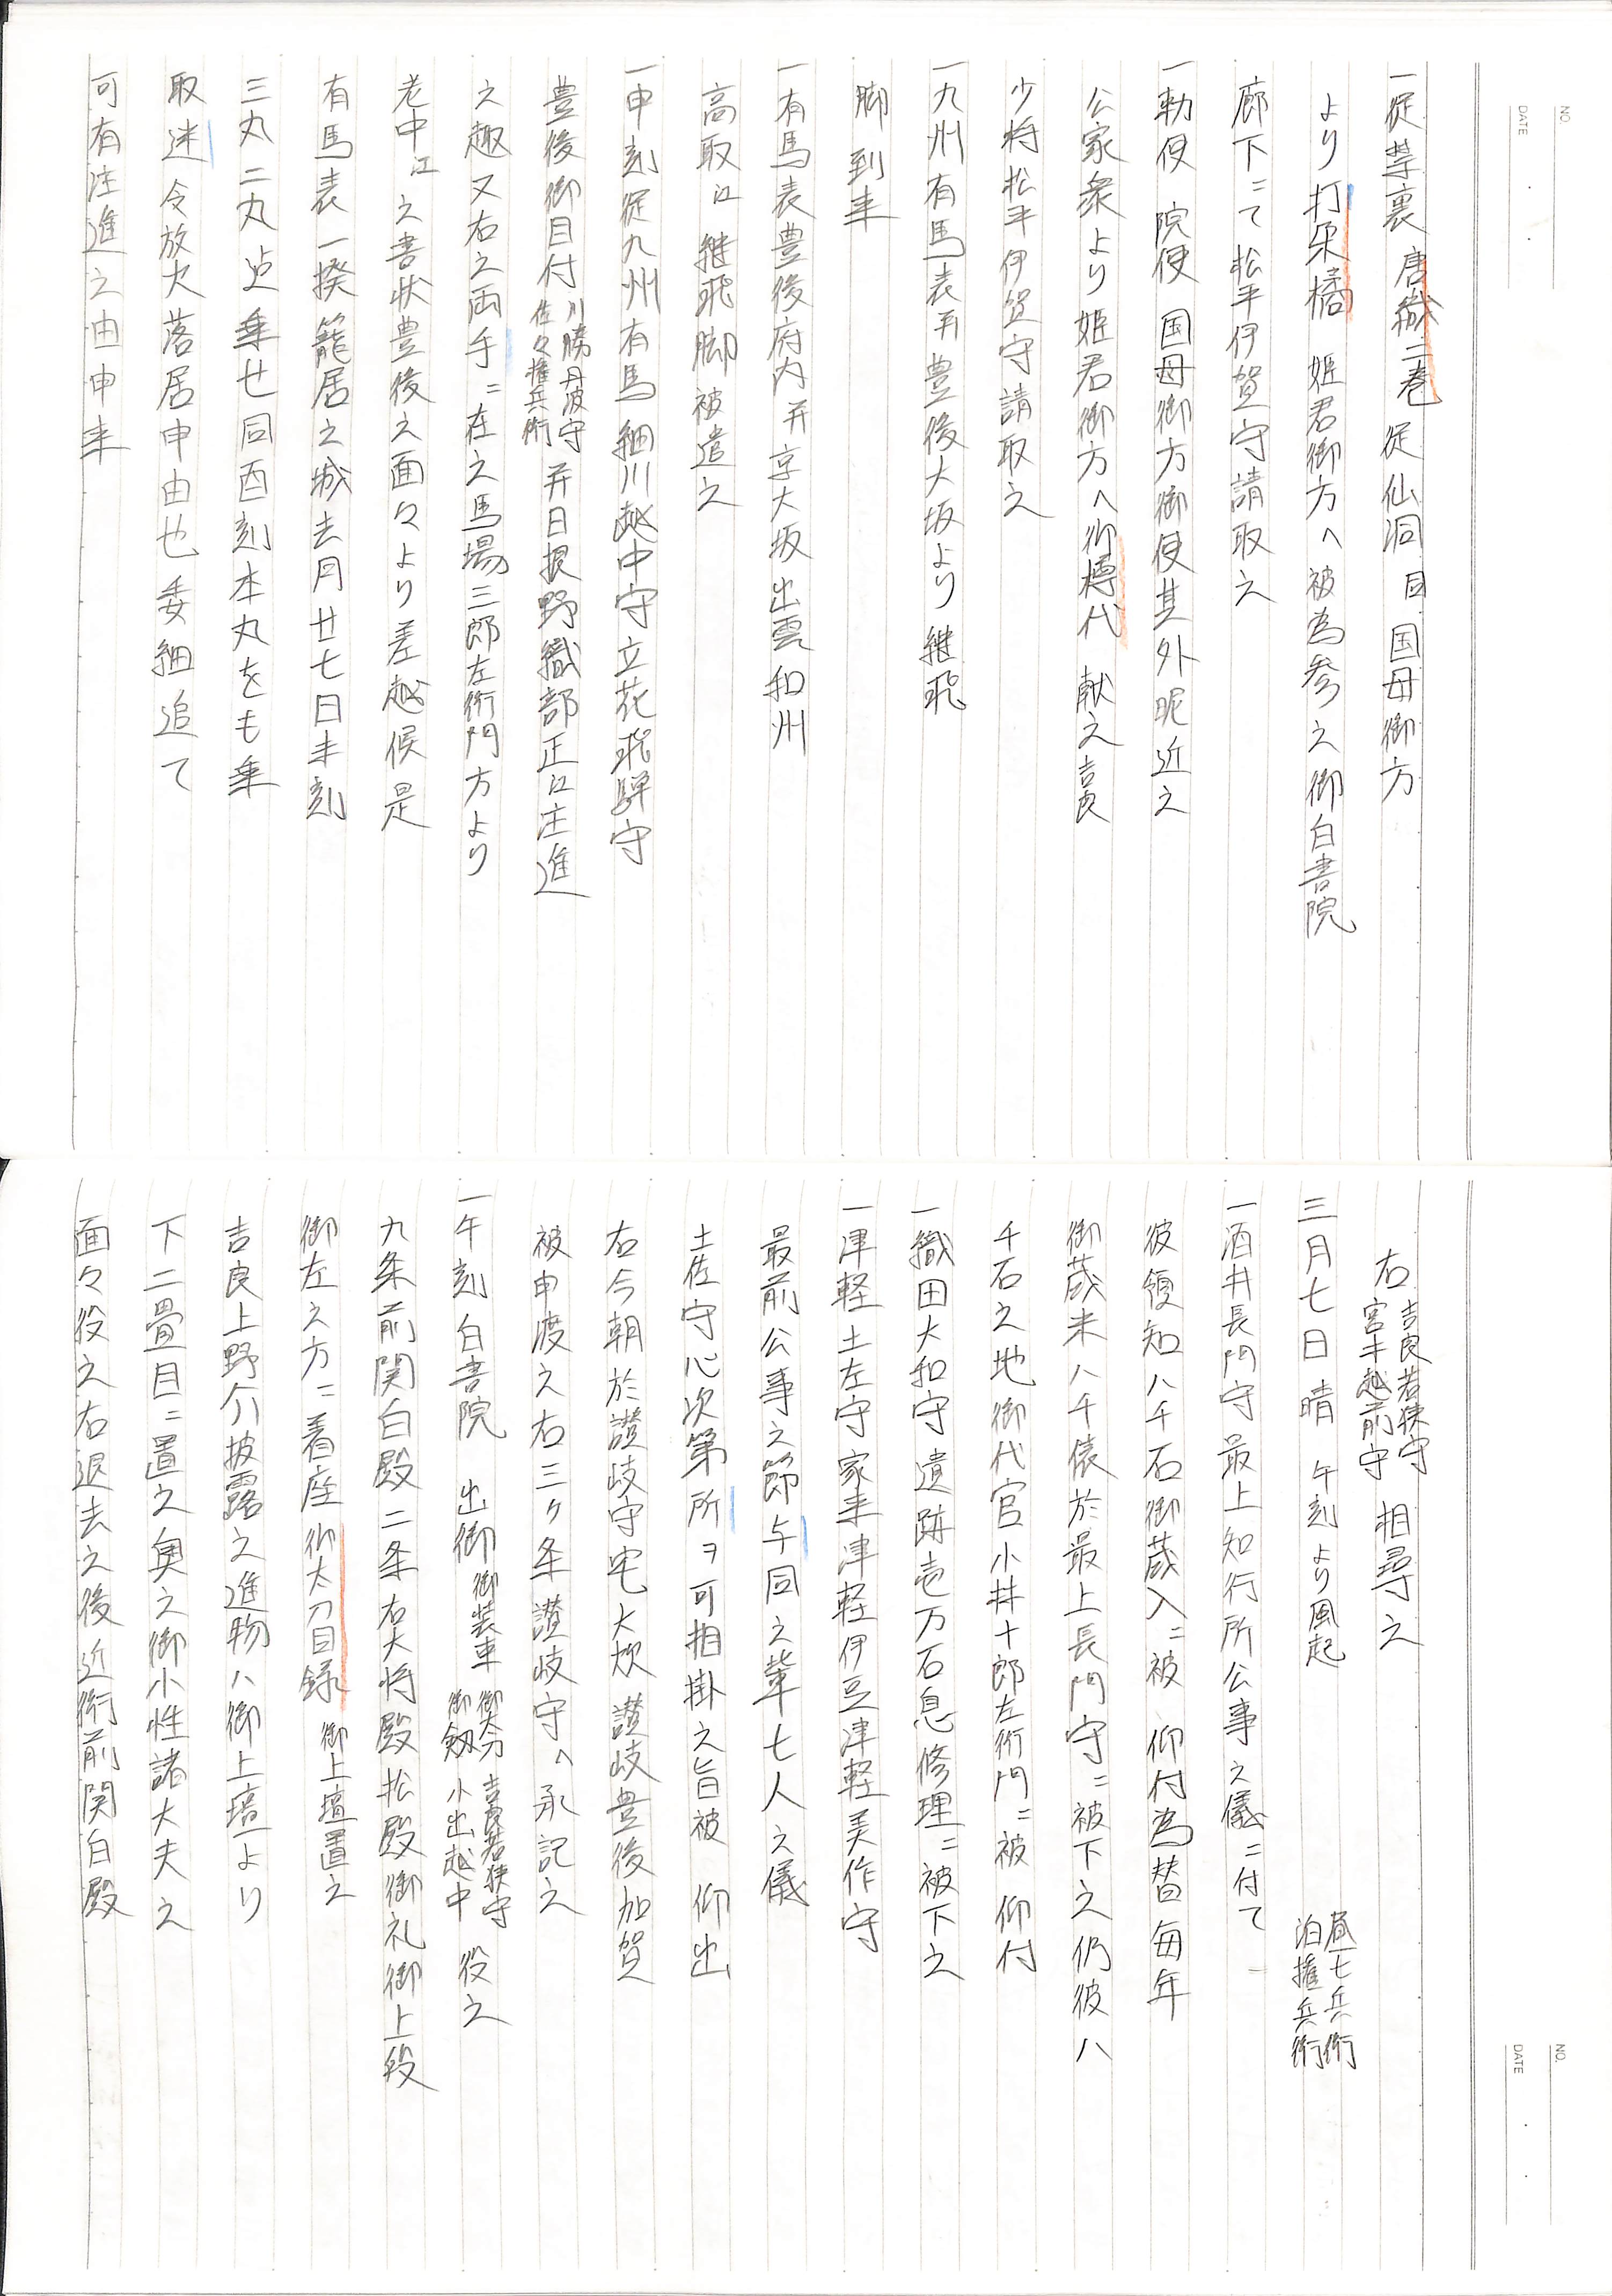 NO.
DATE
一従禁裏 唐織二巻 従仙洞 国母御方
より打朶橘 姫君御方へ被為参之御白書院
廊下ニて松平伊賀守請取之
一勅使 院使 国母御方御使其外昵近之
公家衆より姫君御方へ御樽代 献之吉良
少将松平伊賀守請取之
一九州有馬表并豊後大坂より継飛
脚到来
一有馬表豊後府内并京大坂出雲和州
高取江継飛脚被遣之
一申刻従九州有馬細川越中守立花飛騨守
豊後御目付 川勝丹波守 佐々権兵衛 并日根野織部正江注進
之趣又右之両手ニ在之馬場三郎左衛門方より
老中江之書状豊後之面々より差越候是
有馬表一揆籠居之城去月廿七日未刻
三丸二丸迠乗廿同酉刻本丸をも乗
取迷令放火落居申由也委細追て
可有注進之由申来
NO.
DATE
右 吉良若狭守 宮本越前守 相尋之
三月七日晴 午刻より風起 昼七兵衛 泊権兵衛
一酒井長門守最上知行所公事之儀ニ付て
彼領知八千石御蔵入ニ被 仰付為替毎年
御蔵米八千俵於最上長門守ニ被下之仍彼八
千石之地御代官小井十郎左衛門ニ被 仰付
一織田大和守遺跡壱万石息修理ニ被下之
一津軽土左守家来津軽伊豆津軽美作守
最前公事之節与同之輩七人之儀
土佐守心次第所ヲ可相掛之旨被 仰出
右今朝於讃岐守宅大炊讃岐豊後加賀
被申渡之右三ケ条讃岐守へ承記之
一午刻白書院 出御 御装車 御太刀 吉良若狭守 御劔 小出越中 役之
九条前関白殿二条右大将殿松殿御礼御上段
御左之方ニ着座御太刀目録 御上壇置之
吉良上野介披露之進物ハ御上壇より
下二畳目ニ置之奥之御小性諸大夫之
面々役之右退去之後近衛前関白殿